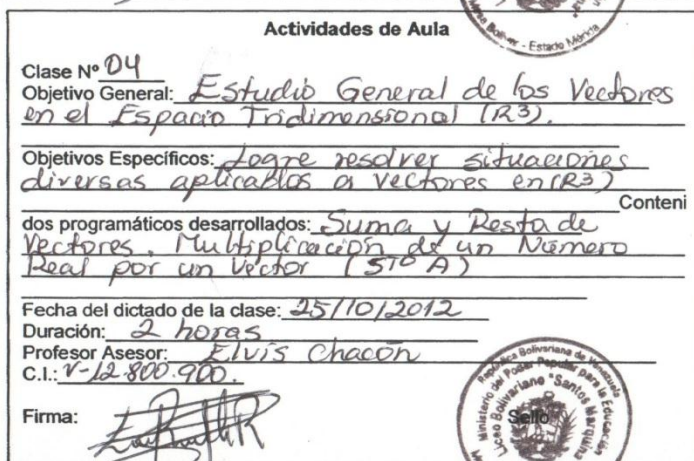 Mérida Bolívar - Estado Mérida
Actividades de Aula
Clase Nº 04
Objetivo General: Estudio General de los Vectores
en el Espacio Tridimensional (R3).
Objetivos Específicos: Logre resolver situaciones
diversas aplicables a vectores en (R3)
Conteni
dos programáticos desarrollados: Suma y Resta de
Vectores. Multiplicación de un Número
Real por un Vector (5TO A)
Fecha del dictado de la clase: 25/10/2012
Duración: 2 horas
Profesor Asesor: Elvis Chacón
C.I.: V-12.800.900.
Firma:
Sello
República Bolivariana de Venezuela
Ministerio del Poder Popular para la Educación
Liceo Bolivariano "Santos Marquina